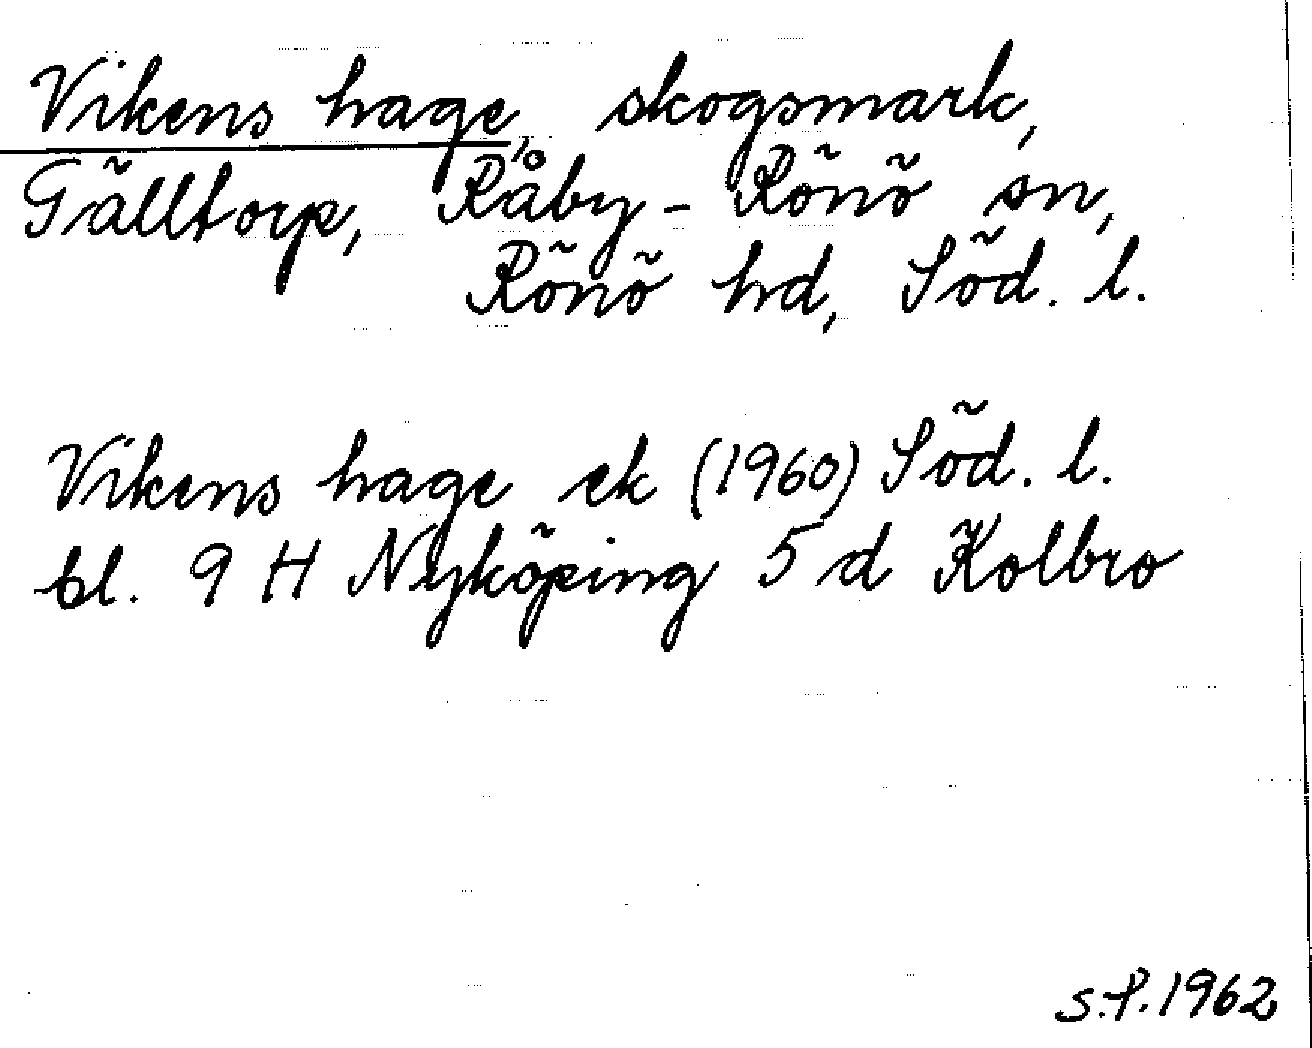 Vikens hage, skogsmark,
Gälltorp, Råby-Rönö sn,
Rönö hd, Söd. l.
Vikens hage ek (1960) Söd. l.
bl. 9 H Nyköping 5 d Kolbro
S.P. 1962